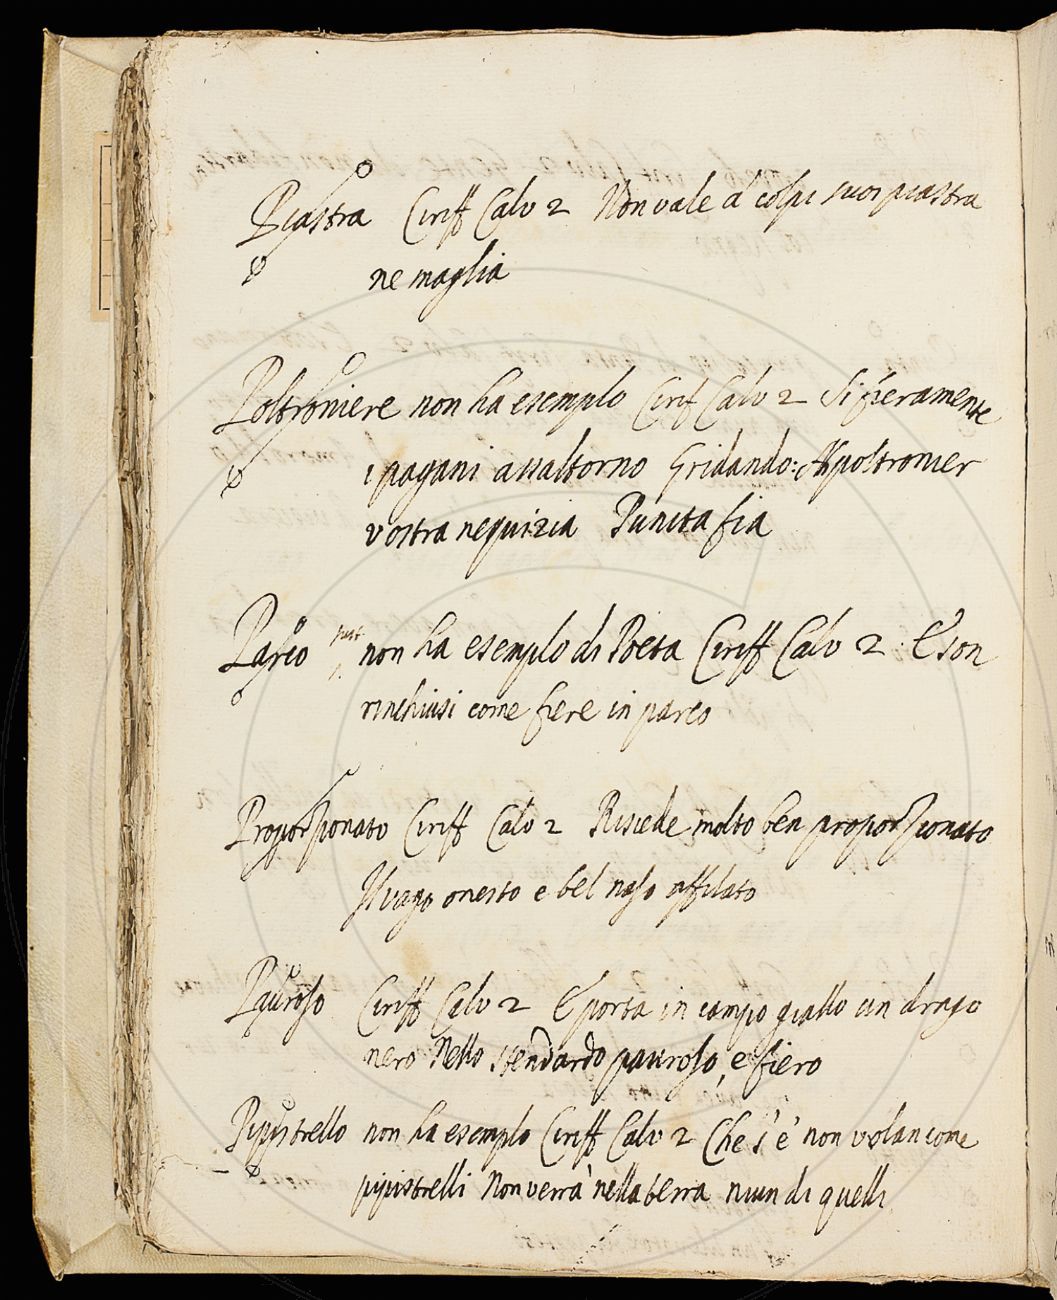 Piastra Ciriff Calv 2 Non vale a' colpi suoi piastra
ne maglia
Poltroniere non ha esemplo Cirif Calv 2 Si fieramente
i pagani assaltorno Gridando: poltronier
vostra nequizia Punita fia
Parco non ha esemplo di Poeta Ciriff Calv 2 E son
rinchiusi come fiere in parco
Proporzionato Ciriff Calv 2 Risiede molto ben proporzionato
Il vago onesto e bel naso affilato
Pauroso Ciriff Calv 2 E porta in campo giallo un drago
nero Nello stendardo pauroso, e fiero
Pipistrello non ha esemplo Ciriff Calv 2 Che s'e' non volan come
pipistrelli Non verrà nella terra niun di quelli